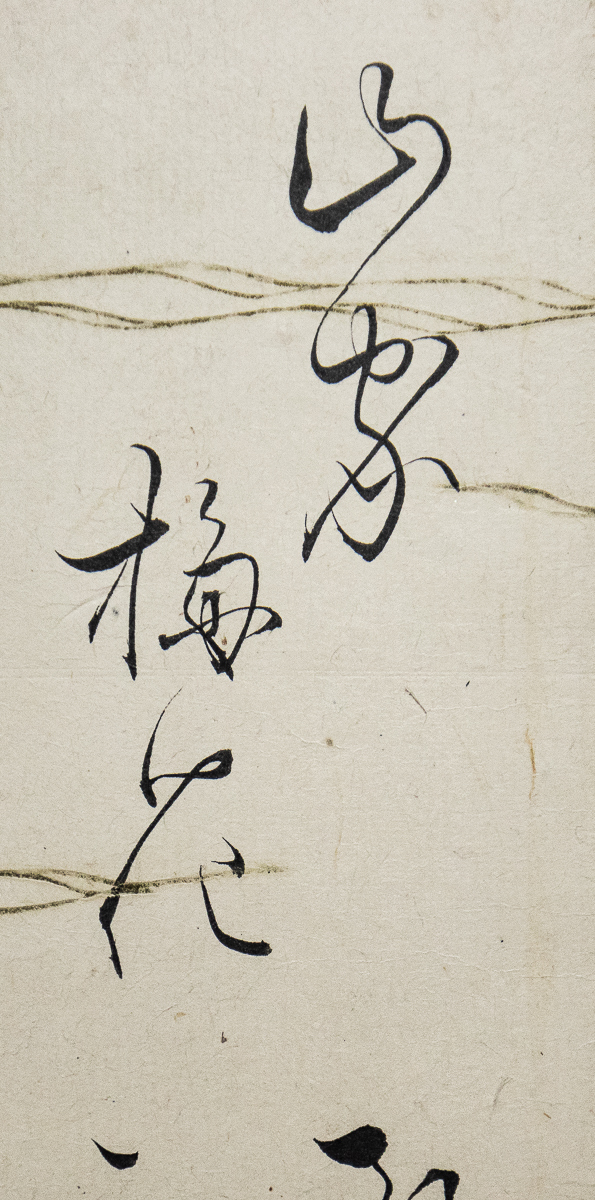 山家
梅花